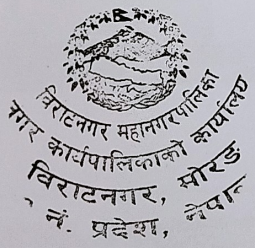 विराटनगर महानगरपालिका
नगर कार्यपालिकाको कार्यालय
विराटनगर, मोरङ
नं. प्रदेश, नेपाल